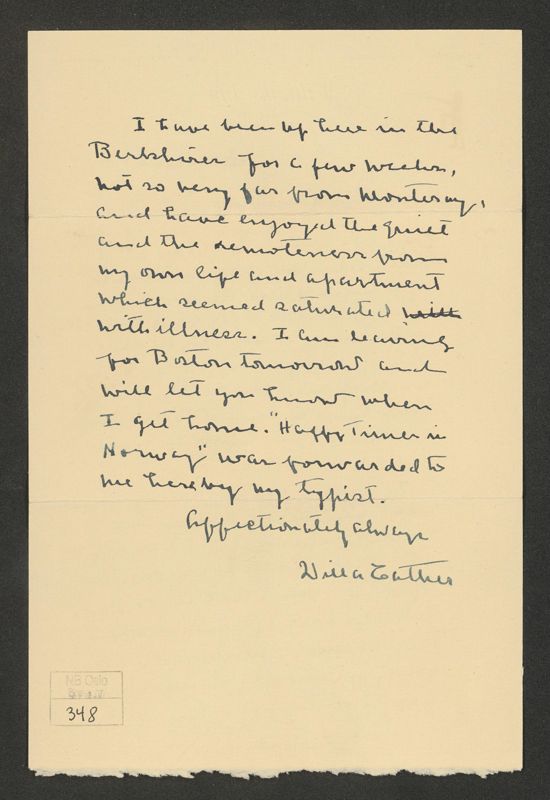 I have been up here in the
Berkshires for a few weeks,
not so very far from Monterey,
and have enjoyed the quiet
and the remoteness from
my own life and apartment
which seemed saturated with
with illness. I am leaving
for Boston tomorrow and
will let you know when
I get home. "Happy Times in
Norway" was forwarded to
me here by my typist.
Affectionately always
Willa Cather
NB Oslo
348